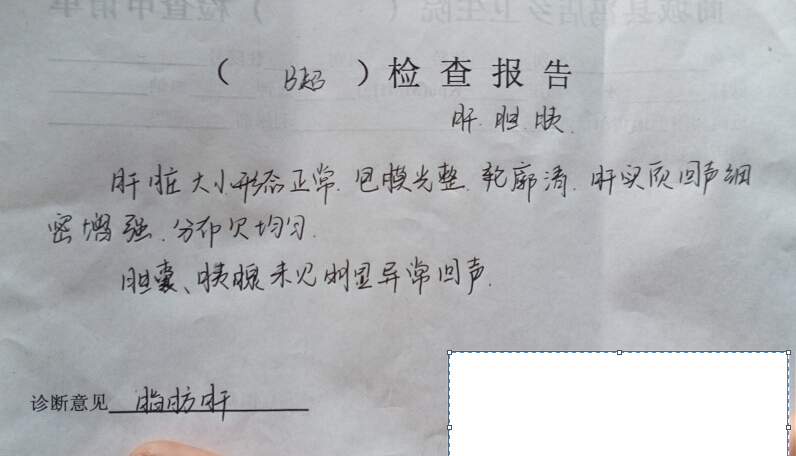 （ B超 ）检查报告
肝.胆.胰.
肝脏大小形态正常.包膜光整.轮廓清.肝实质回声细
密增强.分布欠均匀.
胆囊、胰腺未见明显异常回声.
诊断意见 脂肪肝